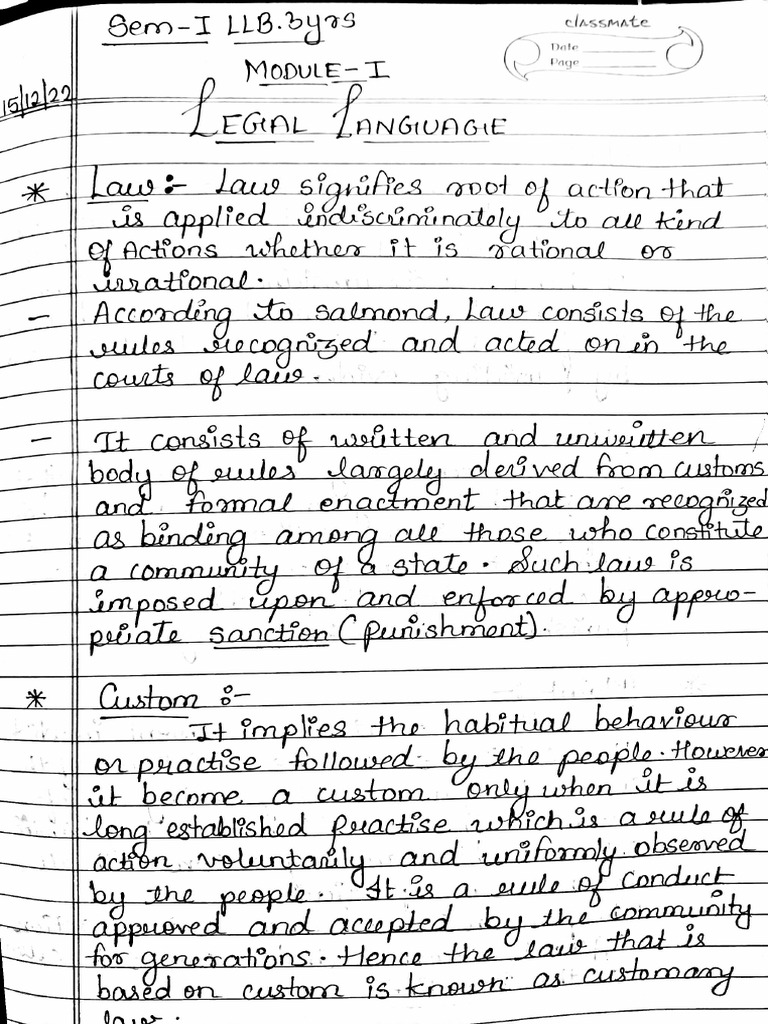 Sem-I LLB.3yrs
classmate
Date
Page
MODULE-I
15/12/22
LEGAL LANGUAGE
* Law:- Law signifies root of action that
is applied indiscriminately to all kind
of Actions whether it is rational or
irrational.
- According to Salmond, Law consists of the
rules recognized and acted on in the
courts of law.
- It consists of written and unwritten
body of rules largely derived from customs
and formal enactment that are recognized
as binding among all those who constitute
a community of a state. Such law is
imposed upon and enforced by appro-
priate sanction (Punishment).
* Custom :-
It implies the habitual behaviour
or practise followed by the people. However
it become a custom only when it is
long established Practise which is a rule of
action voluntarily and uniformly observed
by the people. It is a rule of conduct
approved and accepted by the community
for generations. Hence the law that is
based on custom is known as customary
law.